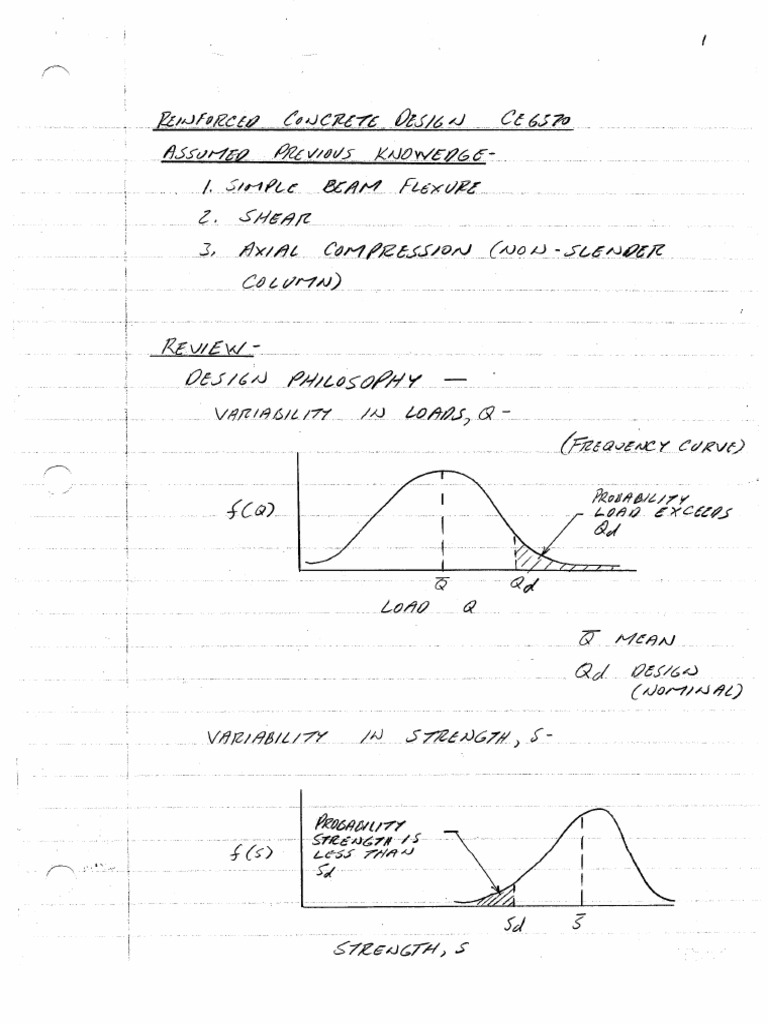 1
REINFORCED CONCRETE DESIGN CE6570
ASSUMED PREVIOUS KNOWEDGE-
1. SIMPLE BEAM FLEXURE
2. SHEAR
3. AXIAL COMPRESSION (NON-SLENDER
COLUMN)
REVIEW-
DESIGN PHILOSOPHY —
VARIABILITY IN LOADS, Q-
(FREQUENCY CURVE)
f(Q)
PROBABILITY
LOAD EXCEEDS
Qd
Q̅ Qd
LOAD Q
Q̅ MEAN
Qd DESIGN
(NOMINAL)
VARIABILITY IN STRENGTH, S-
f(S)
PROBABILITY
STRENGTH IS
LESS THAN
Sd
Sd S̅
STRENGTH, S